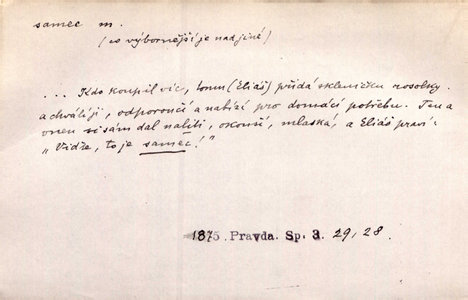 samec m.
(co výbornější je nad jiné)
... Kdo koupil víc, tomu (Eliáš) přidá skleničku rosolky
a chválí ji, odporoučí a nabízí pro domácí potřebu. Ten a
onen si sám dal nalíti, okouší, mlaská, a Eliáš praví:
„Vidře, to je samec!"
1875 Pravda. Sp. 3. 29, 28.